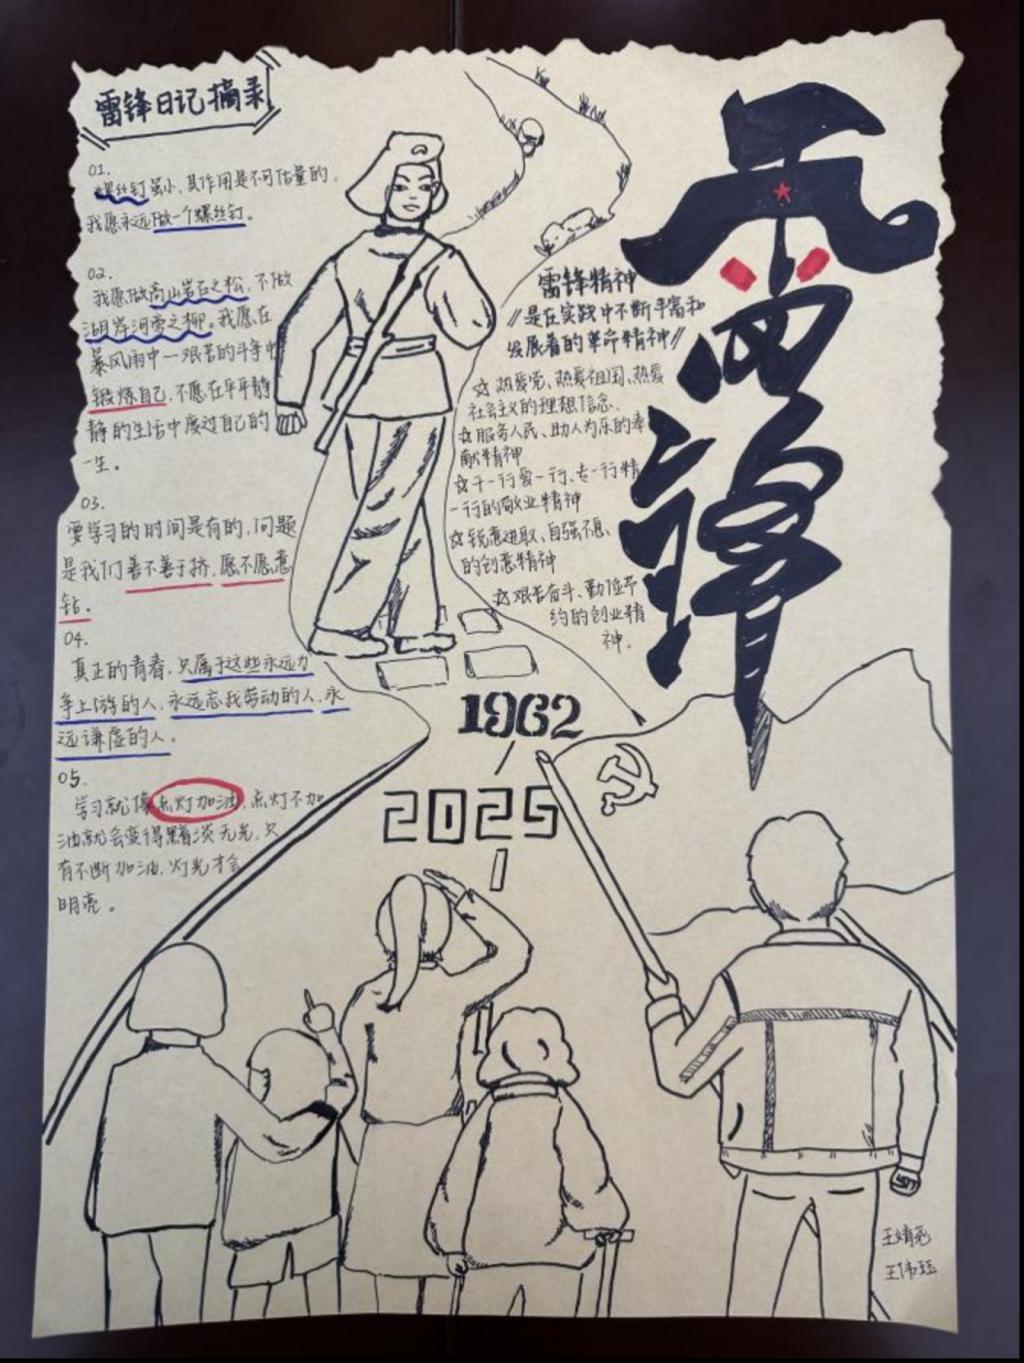 雷锋日记摘录
01.
螺丝钉虽小,其作用是不可估量的,
我愿永远做一个螺丝钉。
02.
我愿做高山岩石之松,不做
湖岸河旁之柳。我愿在
暴风雨中一艰苦的斗争中
锻炼自己,不愿在平平静
静的生活中度过自己的
一生。
03.
要学习的时间是有的,问题
是我们善不善于挤,愿不愿意
钻。
04.
真正的青春,只属于这些永远力
争上游的人,永远忘我劳动的人,永
远谦虚的人。
05.
学习就像点灯加油,点灯不加
油就会变得黯淡无光,只
有不断加油,灯光才会
明亮。
雷锋
雷锋精神
//是在实践中不断丰富和
发展着的革命精神//
☆热爱党、热爱祖国、热爱
社会主义的理想信念、
☆服务人民、助人为乐的奉
献精神
☆干一行爱一行、专一行精
一行的敬业精神
☆锐意进取、自强不息、
的创意精神
☆艰苦奋斗、勤俭节
约的创业精
神.
1962
/
2025
王婧
王伟